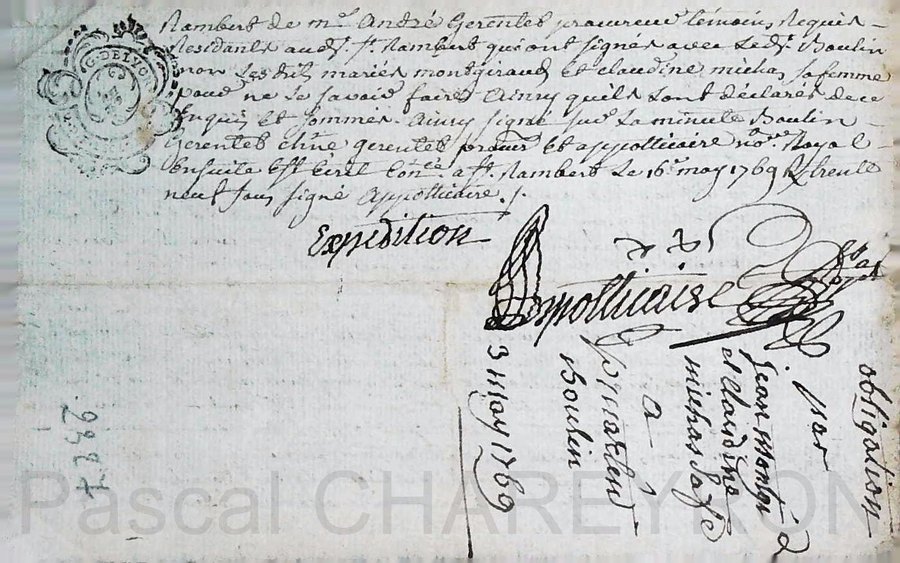 Rambert de mr André Gerentes procureur témoins Requis
Residants audt. St. Rambert qui ont signés avec Ledt. Boulin
non Lesdits mariés montgiraud et claudine michas sa femme
pour ne le savoir faire Ainsy quils sont déclarés de ce
Enquis et sommés. Ainsy signé sur La minute Boulin
Gerentes Gerentes procur et appolticaire nore Royal
Ensuite Est écrit Conlé a St. Rambert Le 16e may 1769 R treute
neuf sous signé Appolticaire ./.
Expédition
Appolticaire
obligation
par
jean montgi
et claudine
michas sa fe
a
Boulin
3 may 1769
G. DE LYO
2327
Pascal CHAREYRON